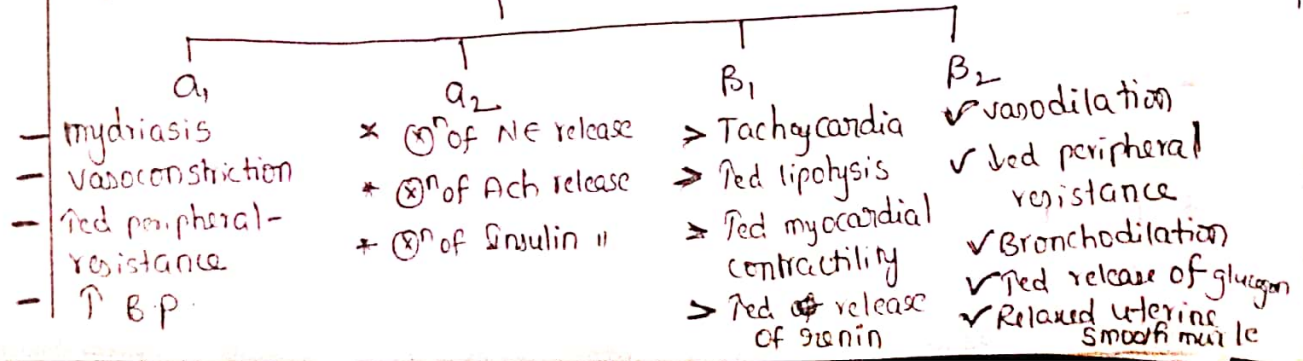 α₁
mydriasis
vasoconstriction
↑ed peripheral-
resistance
↑ B.P.
α₂
× ⓧⁿ of NE release
* ⓧⁿ of Ach release
+ ⓧⁿ of Insulin "
β₁
> Tachycardia
> ↑ed lipolysis
> ↑ed myocardial
contractility
> ↑ed release
of renin
β₂
✓ vasodilation
✓ ↓ed peripheral
resistance
✓ Bronchodilation
✓ ↑ed release of glucagon
✓ Relaxed uterine
smooth muscle